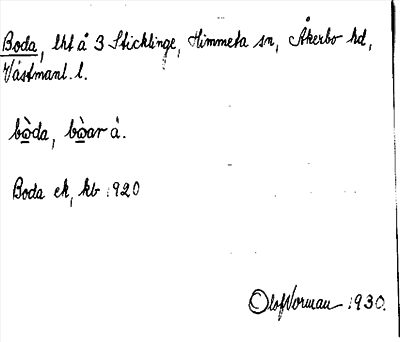 Boda, lht å 3 Sticklinge, Himmeta sn, Åkerbo hd,
Västmanl. l.
bò̲da, bò̲ar å.
Boda ek, kb 1920
Olof Norman 1930.